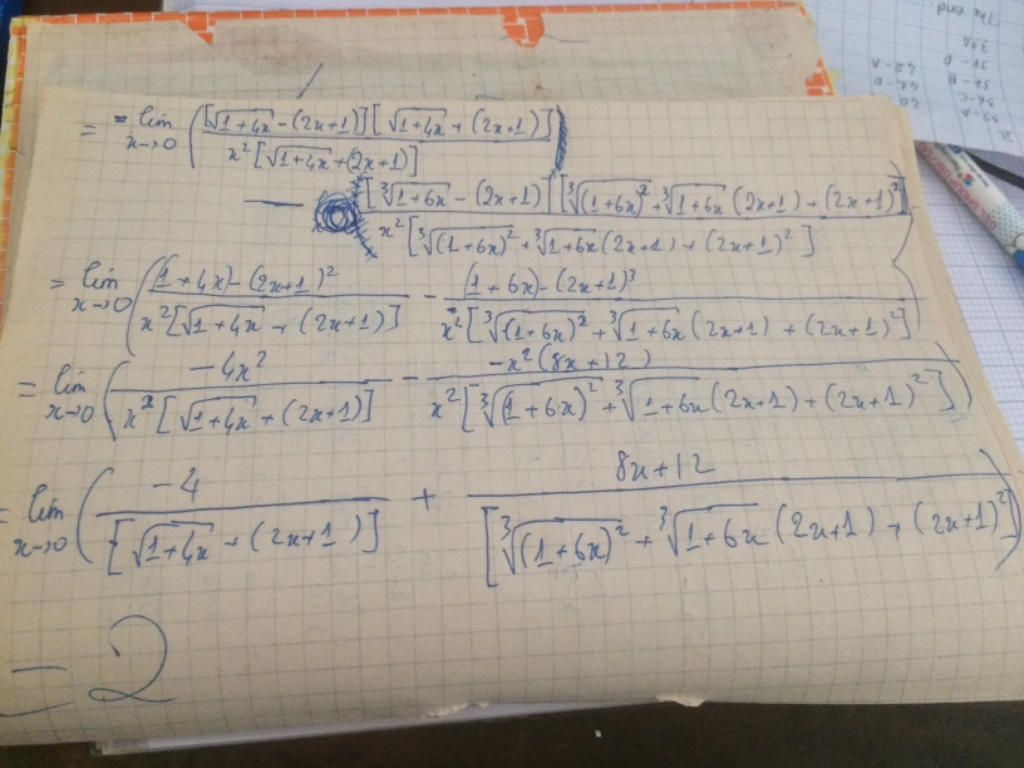 = lim x→0 ( [√(1+4x) - (2x+1)] [√(1+4x) + (2x+1)] / x² [√(1+4x) + (2x+1)] )
- [∛(1+6x) - (2x+1)] [∛(1+6x)² + ∛(1+6x) (2x+1) + (2x+1)²] / x² [∛(1+6x)² + ∛(1+6x) (2x+1) + (2x+1)²] )
= lim x→0 ( (1+4x) - (2x+1)² / x² [√(1+4x) + (2x+1)] - (1+6x) - (2x+1)³ / x² [∛(1+6x)² + ∛(1+6x) (2x+1) + (2x+1)²] )
= lim x→0 ( -4x² / x² [√(1+4x) + (2x+1)] - -x² (8x+12) / x² [∛(1+6x)² + ∛(1+6x) (2x+1) + (2x+1)²] )
= lim x→0 ( -4 / [√(1+4x) + (2x+1)] + 8x+12 / [∛(1+6x)² + ∛(1+6x) (2x+1) + (2x+1)²] )
= 2
The end.
39A
38-D
37-B
36-C
35-A
42-A